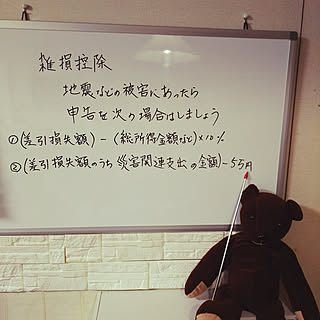 雑損控除
地震などの被害にあったら
申告を次の場合はしましょう
①(差引損失額) - (総所得金額など)×10%
②(差引損失額のうち災害関連支出の金額)-5万円